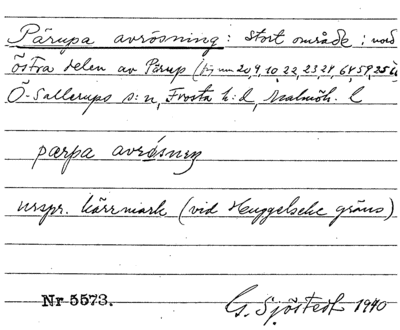 Pärupa avrösning: stort område i nord
östra delen av Pärup (fig nrn 20, 9, 10, 22, 23 24, 64 59, 25
Ö-Sallerups s:n, Frosta h:d, Malmöh. l
pærpa avrösneŋ
urspr. kärrmark (vid Heuggelsche gräns)
Nr 5573. G. Sjöstedt 1940